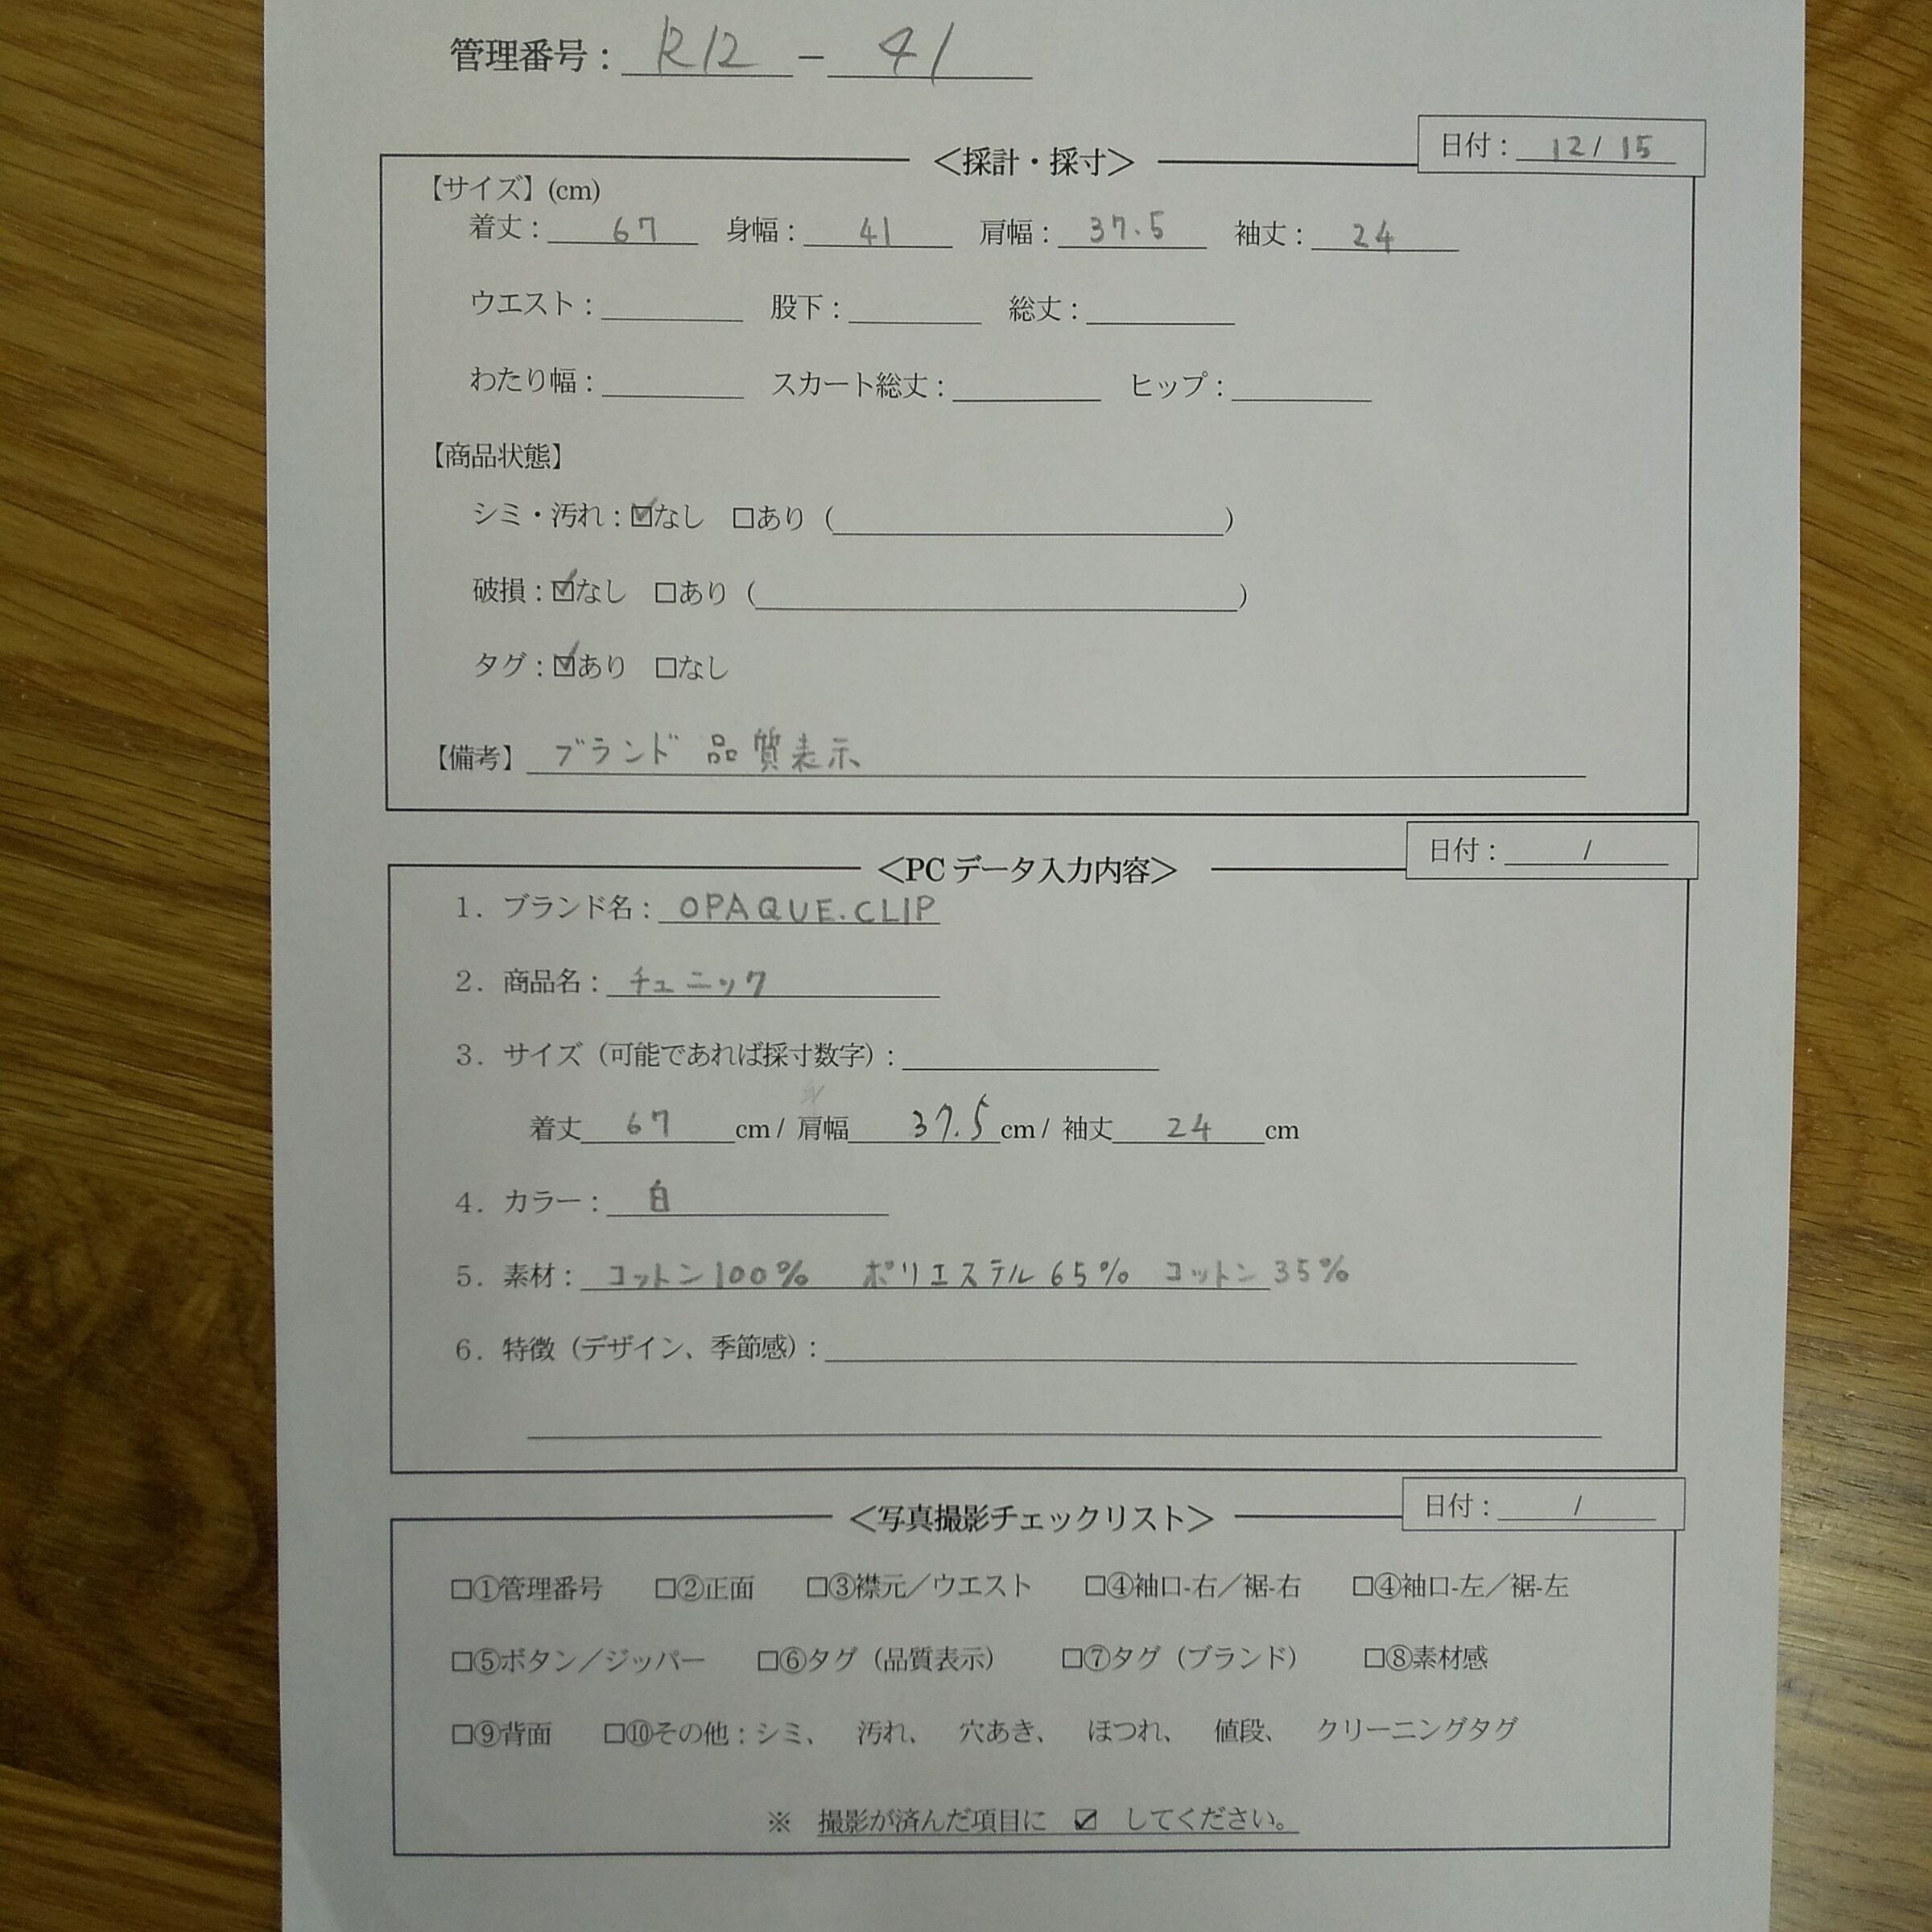 管理番号： R12 － 41
日付： 12/ 15
＜採計・採寸＞
【サイズ】(cm)
着丈： 67 身幅： 41 肩幅： 37.5 袖丈： 24
ウエスト： 股下： 総丈：
わたり幅： スカート総丈： ヒップ：
【商品状態】
シミ・汚れ：☑なし □あり（ ）
破損：☑なし □あり（ ）
タグ：☑あり □なし
【備考】 ブランド 品質表示
日付： /
＜PC データ入力内容＞
1．ブランド名： OPAQUE.CLIP
2．商品名： チュニック
3．サイズ（可能であれば採寸数字）：
着丈 67 cm / 肩幅 37.5 cm / 袖丈 24 cm
4．カラー： 白
5．素材： コットン100% ポリエステル 65% コットン 35%
6．特徴（デザイン、季節感）：
日付： /
＜写真撮影チェックリスト＞
□①管理番号 □②正面 □③襟元／ウエスト □④袖口-右／裾-右 □④袖口-左／裾-左
□⑤ボタン／ジッパー □⑥タグ（品質表示） □⑦タグ（ブランド） □⑧素材感
□⑨背面 □⑩その他：シミ、 汚れ、 穴あき、 ほつれ、 値段、 クリーニングタグ
※ 撮影が済んだ項目に ☑ してください。